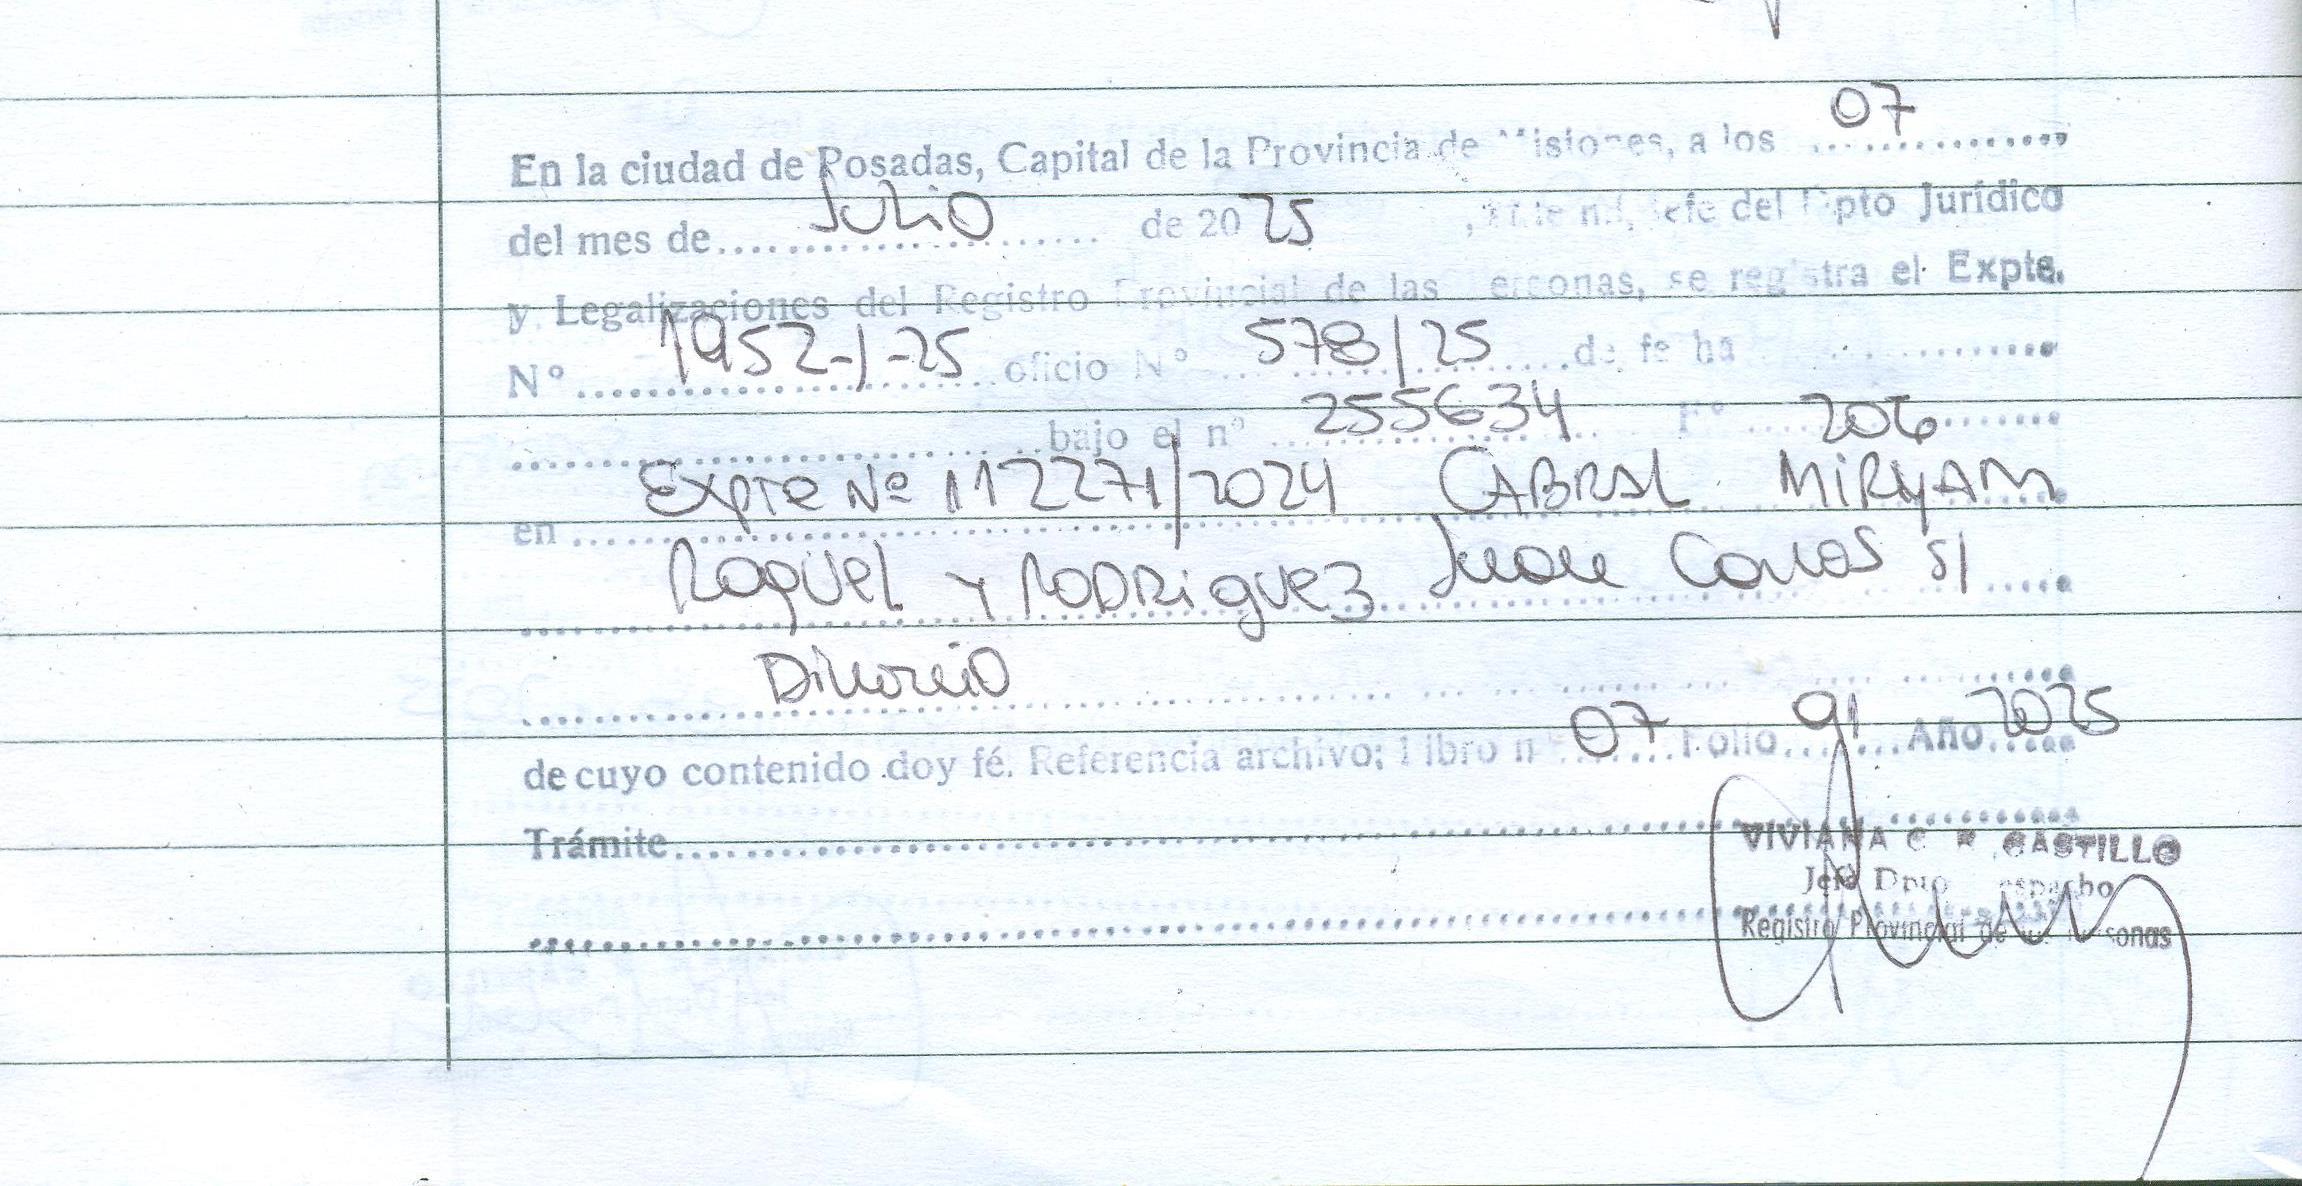 En la ciudad de Posadas, Capital de la Provincia de Misiones, a los 07
del mes de Julio de 2025, Jefe del Dpto Jurídico
y Legalizaciones del Registro Provincial de las Personas, se registra el Expte.
Nº 1952-J-25 oficio Nº 578/25 de fe ha
bajo el nº 255634 Fº 206
en Expte Nº 112271/2024 CABRAL MiRyAM
Raquel y RODRiguez Juan Carlos s/
Divorcio
de cuyo contenido doy fé. Referencia archivo; Libro nº 07 Folio 91 Año 2025
Trámite
VIVIANA C. R. CASTILLO
Jefa Dpto Despacho
Registro Provincial de las Personas